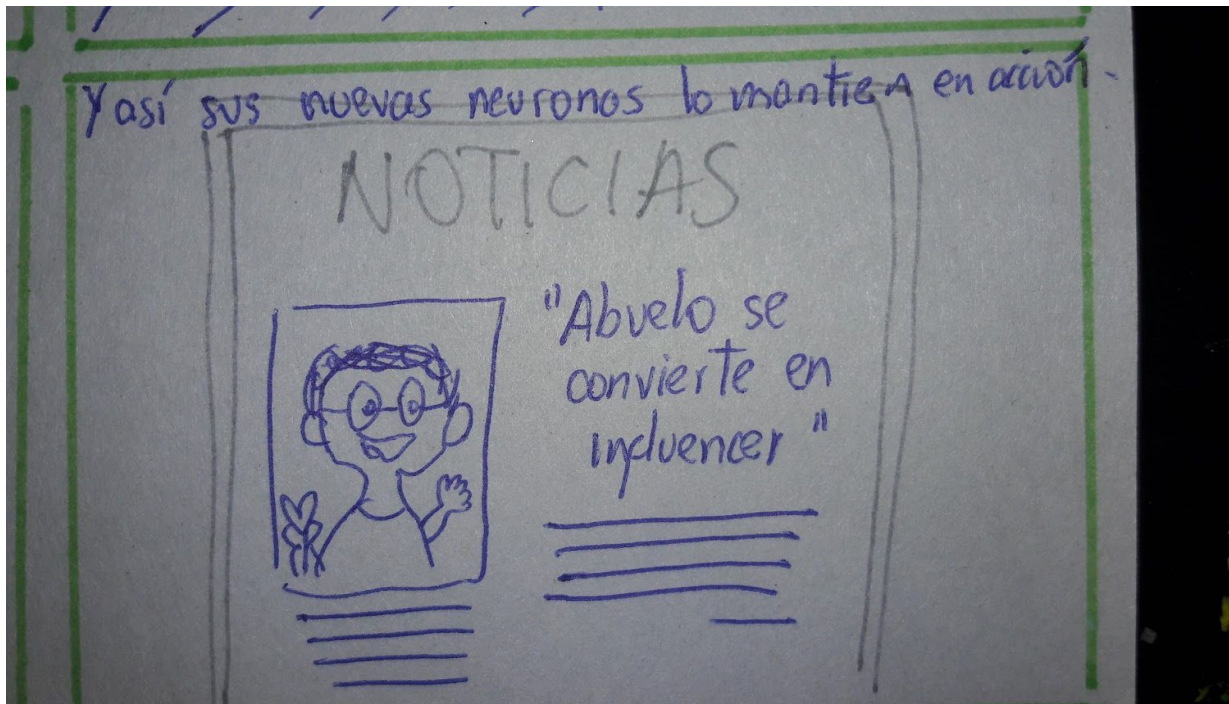 Y así sus nuevas neuronas lo mantien en acción.
NOTICIAS
"Abuelo se
convierte en
influencer"